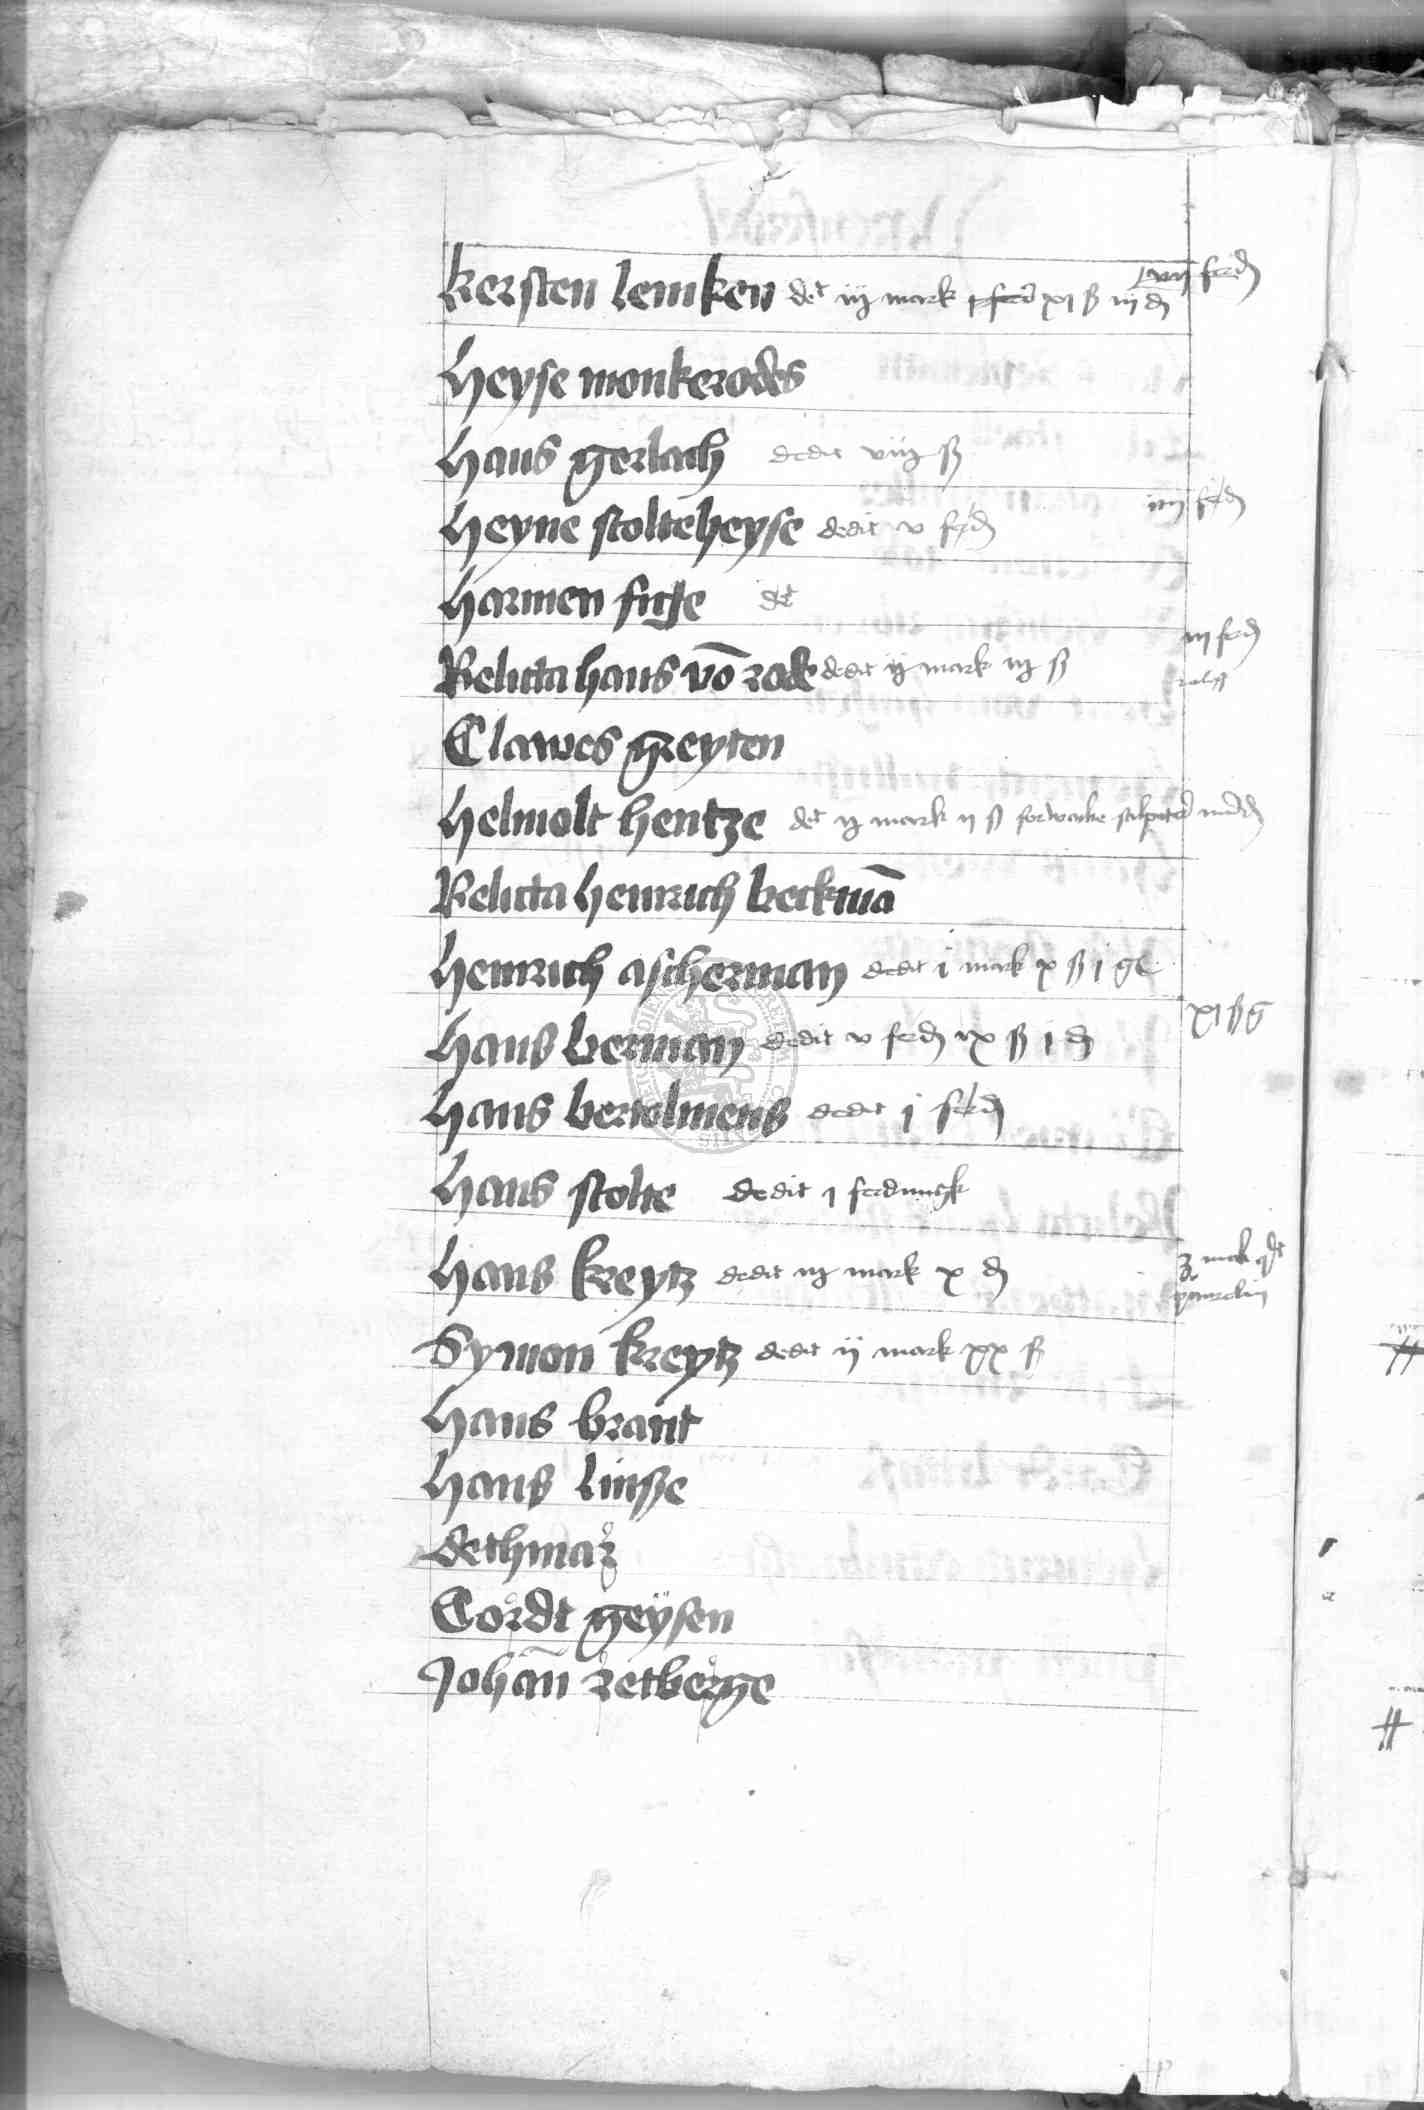 kersten lemken det iij mark j ferd xj ß iij d
vij ferd
Heyse monkerodes
Hans gerlach dedit viij ß
Heyne stolteheyse dedit v ferd
iiij ferd
Harmen det
Relicta hans vō rode dedit ij mark iij ß
iij ferd
Clawes greyten
Helmolt hentze det ij mark ij ß
Relicta henrich beckmā
Henrich ascherman dedit i mark x ß j
Hans berman dedit v ferd ix ß j d
xj ß
Hans bertolmeus dedit j ferd
Hans stolte dedit j ferdungk
Hans kreytz dedit iij mark x d
Symon kreytz dedit ij mark xx ß
Hans brant
Hans linsse
dethmar
Cordt geÿsen
Johān retberge